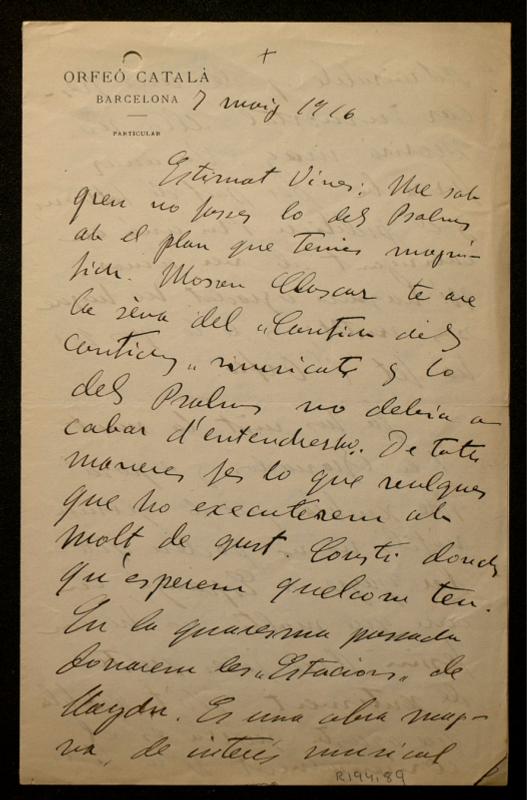 ORFEÓ CATALÀ
BARCELONA
PARTICULAR
7 maig 1916
Estimat Vives: Me sab
greu no fasses lo dels Psalms
ab el plan que tenies magní-
fich. Mossen Clascar te are
la séva del "Cantich dels
cantichs" musicats y lo
dels Psalms no debia a-
cabar d'entendresho. De totes
maneres fes lo que vulgues
que ho executerem ab
molt de gust. Consti donchs
qu'esperem quelcom teu.
En la quaresma passada
donarem les "Estacions" de
Haydn. Es una obra mag-
na, de interés musical
R194,89